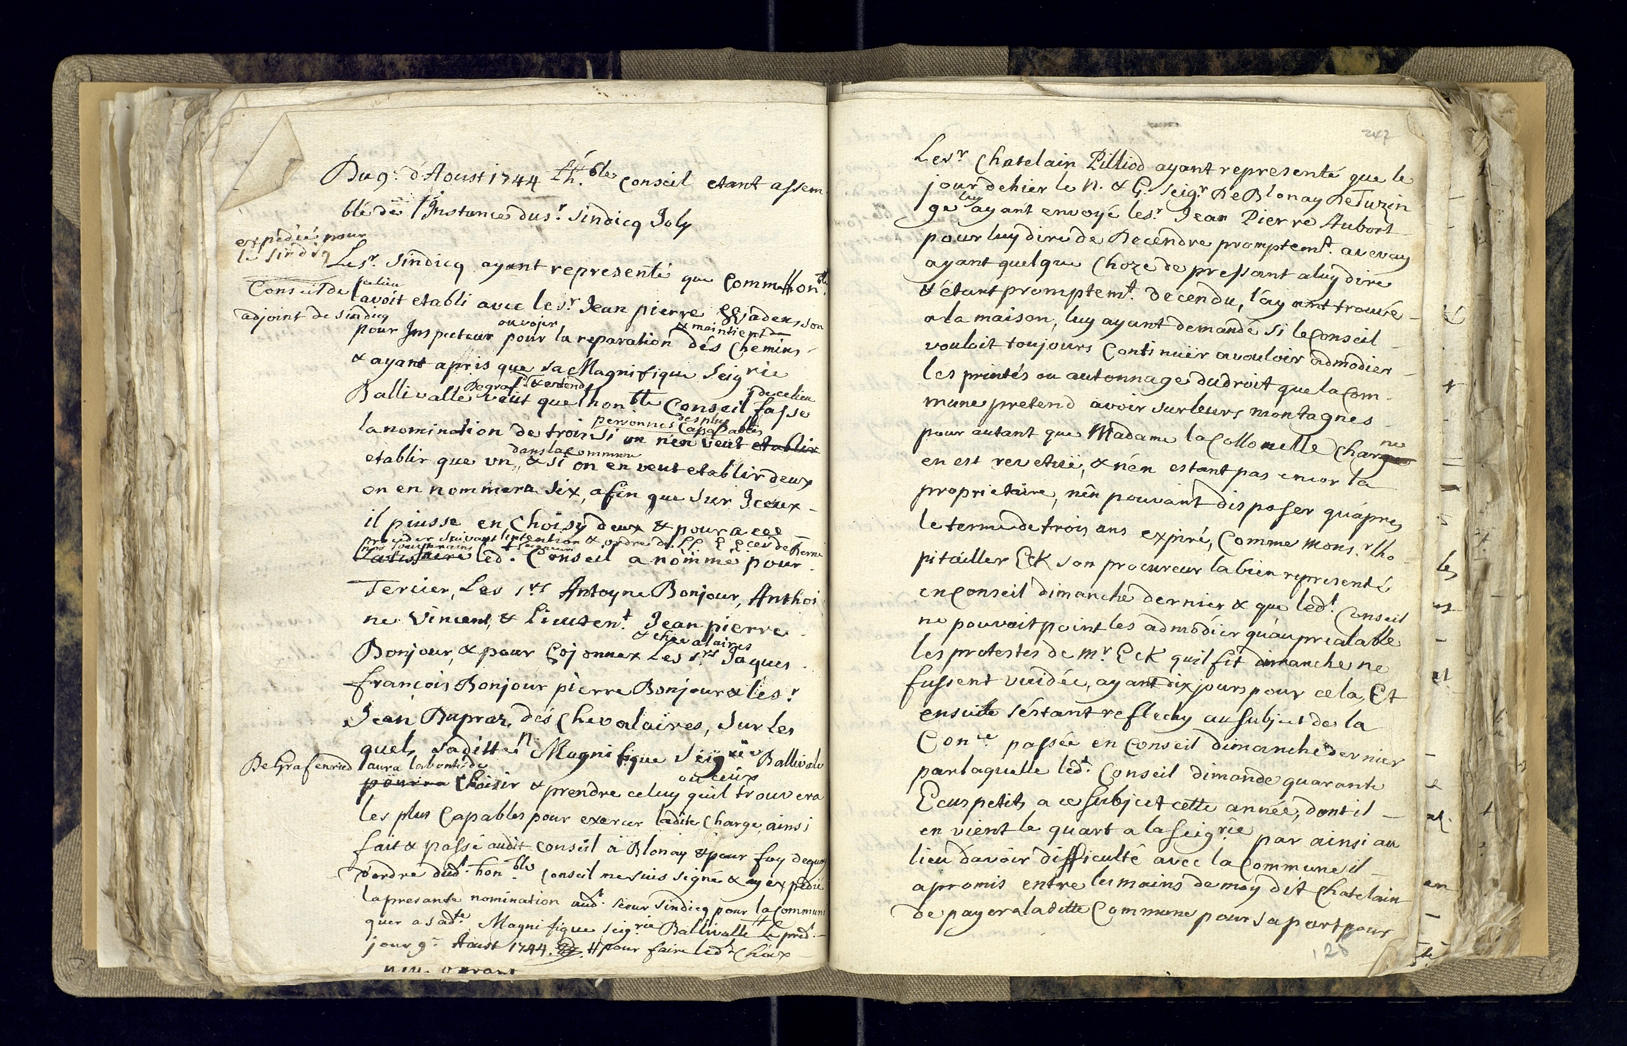 Du 9.e d'Aoust 1744 l'h.ble Conseil etant assem
blé de l'Instance du s.r Sindicq Joly
expedié pour
le Sindiq
Le s.r Sindicq ayant representé que Comme l'hon.ble
Conseil de
l'avoit etabli avec le s.r Jean pierre
adjoint de Sindicq
ou voyer & maintien de
pour Inspecteur pour la reparation dés Chemins
& ayant apris que sa Magnifique Seig.rie
De Graf.
Ballivalle veut que l'hon.ble Conseil fasse
personnes des plus Capables
la nomination de trois si on n'en veut etablir
dans la Commune
etablir que un, & si on en veut etablir deux
on en nommera six, afin que sur Iceux
il puisse en Choisy deux & pour a ce
proceder suivant l'intention & ordre de LL. EE. de Berne
nos souverains
satisfaire led.t Conseil a nommé pour
Tercier, Les s.rs Antoyne Bonjour, Anthoi
ne Vincent, & Lieuten.t Jean pierre
& chevalaires
Bonjour, & pour Cojonnex Les s.rs Jaques
françois Bonjour pierre Bonjour & le s.r
Jean Dupraz, dés Chevalaires, sur les
quels saditte Magnifique Seig.rie Ballivale
De Grafenried
aura la bonté de
pourra Choisir & prendre celuy ou ceux qu'il trouvera
les plus Capables pour exercer ladite Charge ainsi
fait & passé audit Conseil à Blonay & pour foy dequoy
d'ordre dud.t hon.ble Conseil me suis signé & ay expedié
la presente nomination aud.t sieur Sindicq pour la Commun
quer a sad.te Magnifique Seig.rie Ballivalle le pred.t
jour 9.e Aoust 1744. pour faire led.t Choix
242
Le s.r Chatelain Pilliod ayant representé que le
jour dehier le N. & G. Seig.r De Blonay
luy
ge ayant envoyé le s.r Jean Pierre Aubort
pour luy dire de Decendre promptem.t avevay
ayant quelque Choze de pressant a luy dire
& étant promptem.t decendu, l'ay ant trouvé
a la maison, luy ayant demandé si le Conseil
vouloit toujours Continuër a vouloir admodier
les printés ou autonnage du droit que la Com-
mune pretend avoir sur leurs montagnes
pour autant que Madame la Collonelle
en est revetuë, & n'en estant pas encor la
proprietaire, n'en pouvant disposer qu'apres
le terme de trois ans expiré, Comme Mons.r l'ho-
pitallier Eck son procureur la bien representé
en Conseil dimanche dernier & que led.t Conseil
ne pouvoit point les admodier qu'au préalable
les protestes de m.r Eck quil fit dimanche ne
fussent vuidée, ayant dix jours pour cela, Et
ensuite s'estant reflechy au subject de la
Con.ce passée en Conseil dimanche dernier
par laquelle led.t Conseil dimande quarante
Ecus petits a ce subject cette année, dont il
en vient le quart a la Seig.rie par ainsi au
lieu d'avoir difficulté avec la Commune il
a promis entre les mains de moy dit Chatelain
de payer a laditte Commune pour sa part pour
125